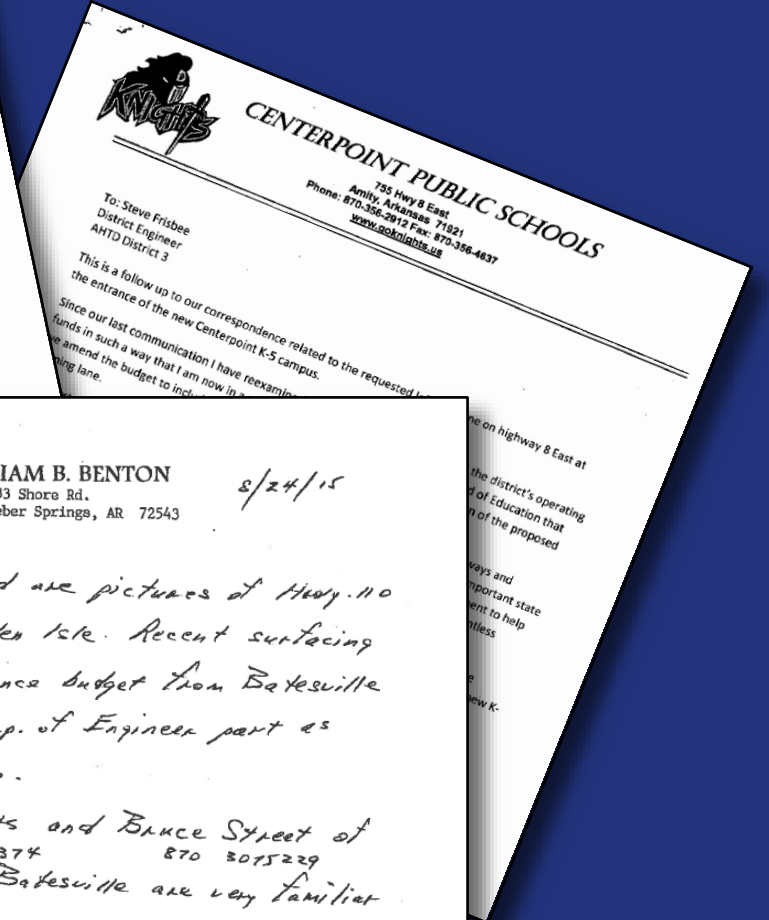 KNIGHTS
CENTERPOINT PUBLIC SCHOOLS
755 Hwy 8 East
Amity, Arkansas 71921
Phone: 870-356-2912 Fax: 870-356-4637
www.goknights.us
To: Steve Frisbee
District Engineer
AHTD District 3
This is a follow up to our correspondence related to the requested
ne on highway 8 East at
the entrance of the new Centerpoint K-5 campus.
Since our last communication I have reexamin
the district's operating
funds in such a way that I am now in a
d of Education that
e amend the budget to inclu
n of the proposed
ning lane.
ways and
mportant state
ent to help
ntless
e
new K-
IAM B. BENTON
33 Shore Rd.
eber Springs, AR 72543
8/24/15
d are pictures of Hwy. 110
en Isle. Recent surfacing
nce budget from Batesville
p. of Engineer part as
.
ts and Bruce Street of
374 870 3075229
Batesville are very familiar